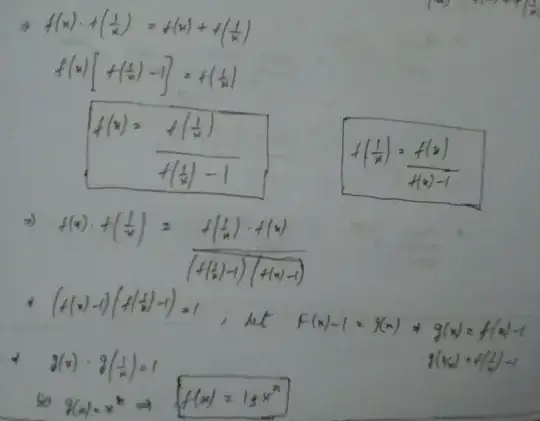 ⇒ f(x) · f(1/x) = f(x) + f(1/x)
f(x) [ f(1/x) - 1 ] = f(1/x)
f(x) = f(1/x) / (f(1/x) - 1)
f(1/x) = f(x) / (f(x) - 1)
⇒ f(x) · f(1/x) = f(1/x) · f(x) / (f(1/x) - 1)(f(x) - 1)
⇒ (f(x) - 1)(f(1/x) - 1) = 1 , let f(x) - 1 = g(x) ⇒ g(x) = f(x) - 1
g(1/x) = f(1/x) - 1
⇒ g(x) · g(1/x) = 1
so g(x) = x^n ⇒ f(x) = 1 ± x^n